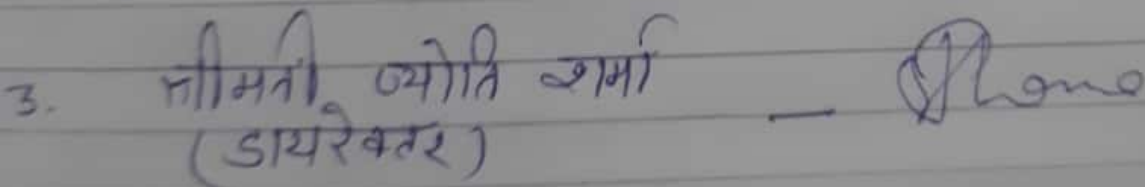 3. श्रीमती ज्योति शर्मा —
(डायरेक्टर)